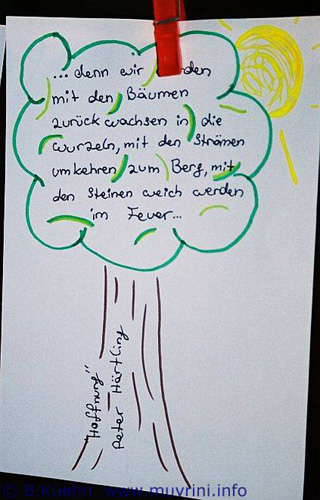 ... denn wir den
mit den Bäumen
zurück wachsen in die
Wurzeln, mit den Strömen
umkehren zum Berg, mit
den Steinen weich werden
im Feuer...
"Hoffnung"
Peter Härtling
© B.Kuehn www.muvrini.info